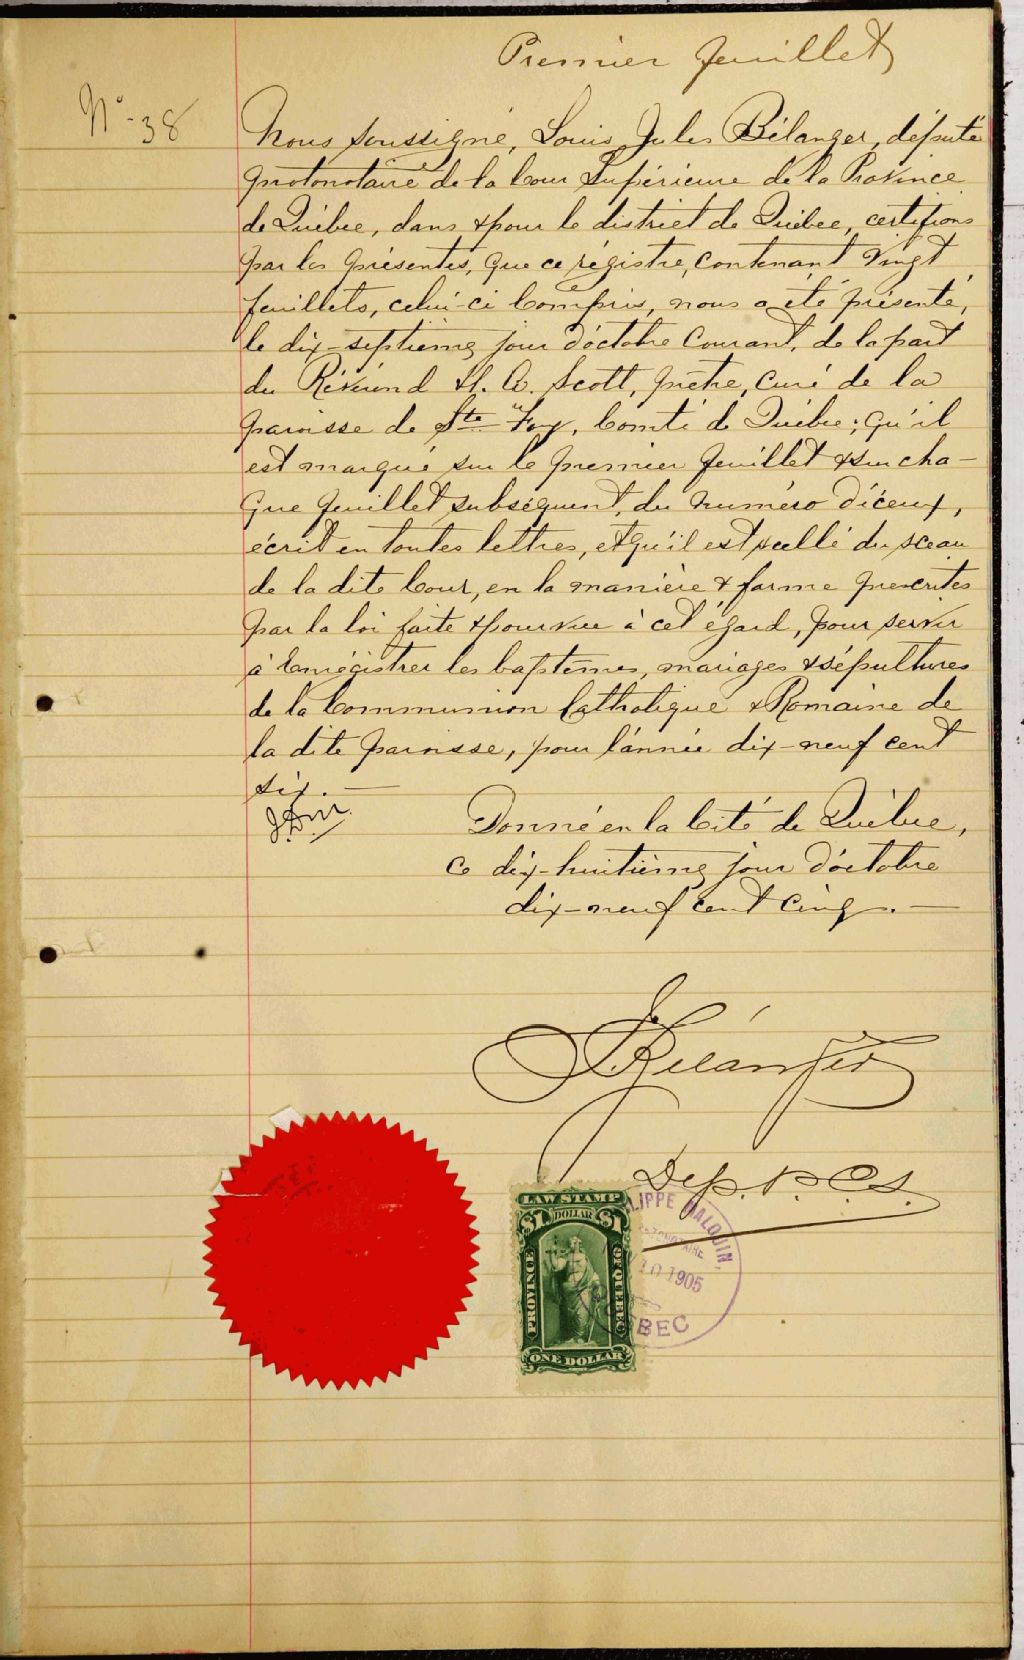 Premier feuillet
No - 38
Nous soussigné, Louis Jules Bélanger, député
protonotaire de la Cour Supérieure de la Province
de Québec, dans & pour le district de Québec, certifions
par les présentes, que ce régistre, contenant vingt
feuillets, celui-ci compris, nous a été présenté,
le dix-septième jour d'octobre courant, de la part
du Révérend H. A. Scott, prêtre, curé de la
paroisse de Ste Foy, Comté de Québec; qu'il
est marqué sur le premier feuillet & sur cha-
que feuillet subséquent, du numéro d'iceux,
écrit en toutes lettres, et qu'il est scellé du sceau
de la dite Cour, en la manière & forme prescrites
par la loi faite & pourvue à cet égard, pour servir
à enrégistrer les baptêmes, mariages & sépultures
de la Communion Catholique & Romaine de
la dite paroisse, pour l'année dix-neuf cent
six. —
Donné en la Cité de Québec,
ce dix-huitième jour d'octobre
dix-neuf cent cinq. —
Bélanger
Dep. P. C. S.
LAW STAMP
$1 DOLLAR $1
PROVINCE OF QUEBEC
ONE DOLLAR
LIPPE MALOUIN
TONOTAIRE
10 1905
BEC